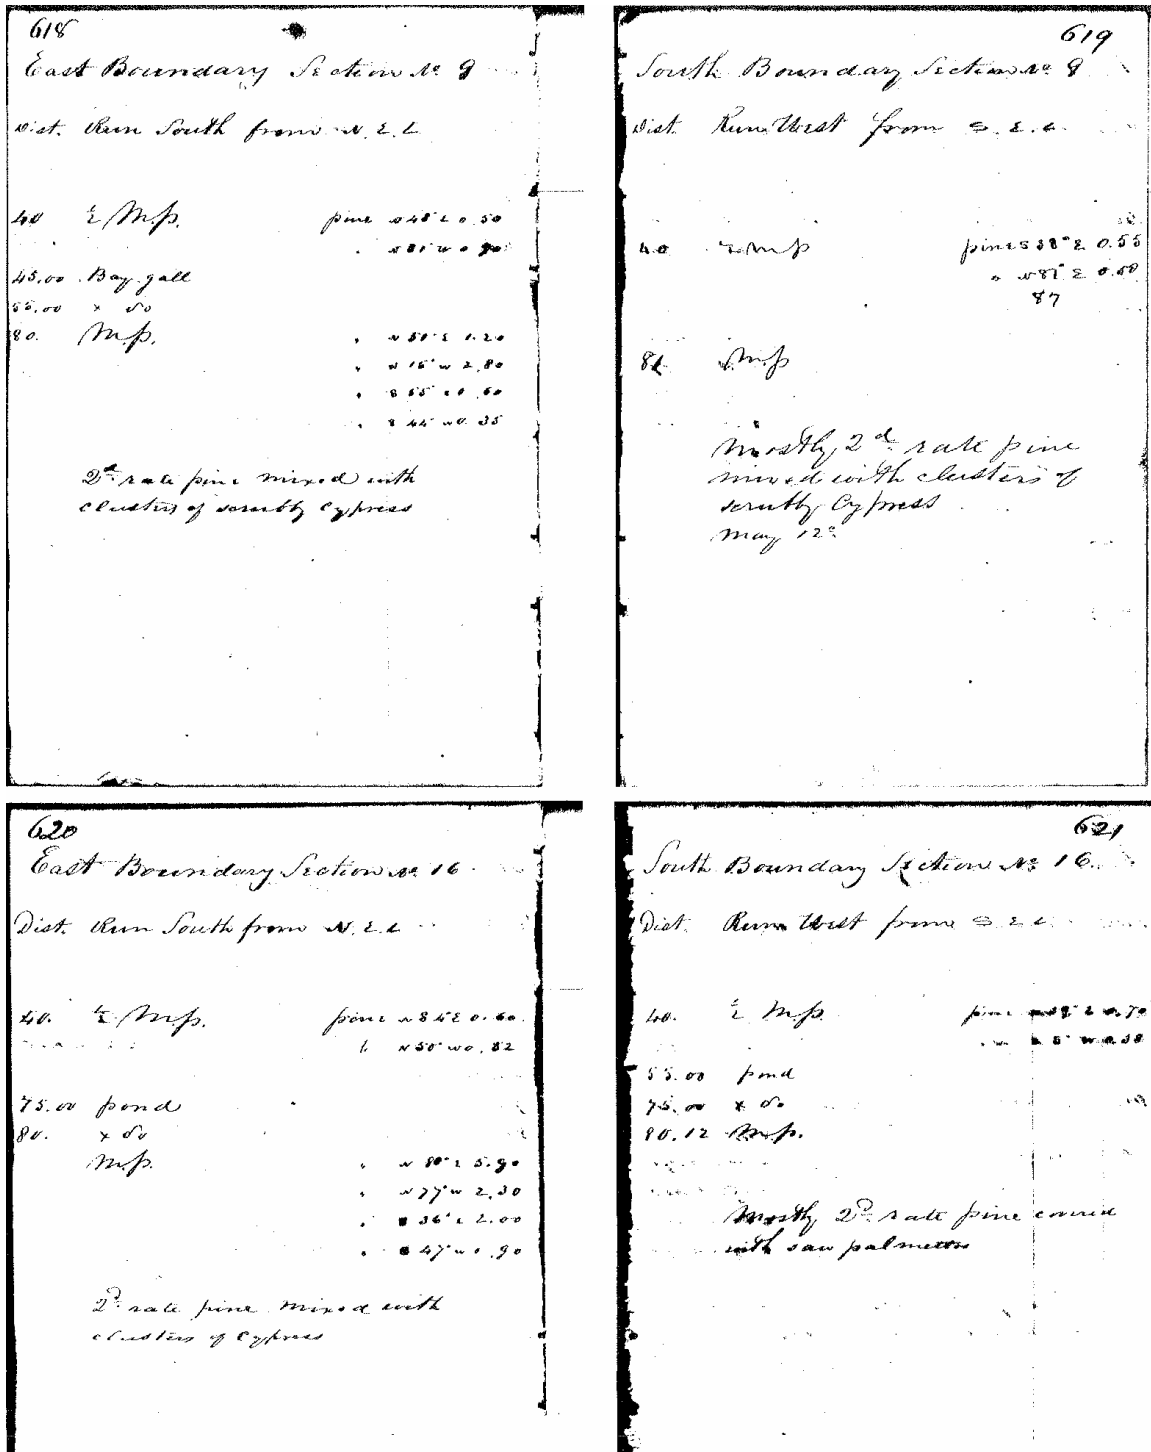 618
East Boundary Section No. 9
Dist. Run South from N. E. C
40 ½ M.p. pine N 48° E 0.50
" N 81° W 0.90
45.00 Bay gall
55.00 x do
80. M.p. " N 50° E 1.20
" N 15° W 2.80
" S 55° E 0.60
" S 44° W 0.35
2d rate pine mixed with
clusters of scrubby Cypress
619
South Boundary Section No 9
Dist. Run West from S. E. C.
40 ½ M.p pine S 38° E 0.55
" N 81° E 0.50
87
M.p
Mostly 2d rate pine
mixed with clusters of
scrubby Cypress
May 12
620
East Boundary Section No 16
Dist. Run South from N. E. C
40. ½ M.p. pine N 84 E 0.60
N 50° W 0.82
75.00 pond
80. x do
M.p. " N 80° E 5.90
" N 77° W 2.30
" 36° E 2.00
" 47° W 0.90
2d rate pine mixed with
clusters of Cypress
621
South Boundary Section No 16.
Dist. Run West from S. E. C.
40. ½ M.p. pine E 0.70
55.00 pond
75.00 x do
80.12 M.p.
Mostly 2d rate pine covered
with saw palmetto